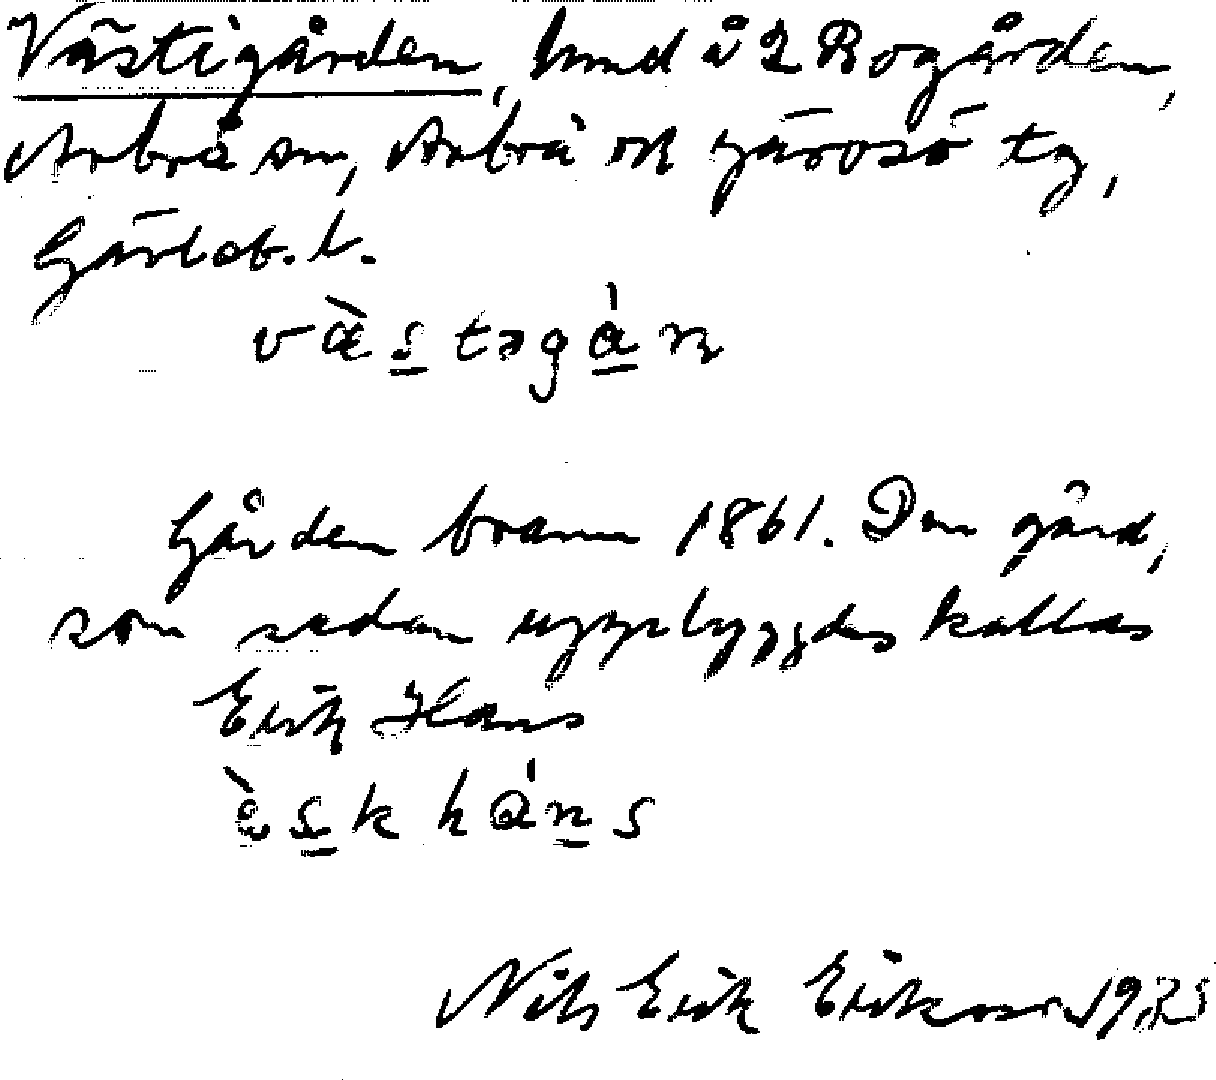 Västigården, hmd å 2 Rogården,
Arbrå sn, Arbrå och Järvsö tg,
Gävleb. l.
væ̀s̲təgɑ̲́n
Gården brann 1861. Den gård,
som sedan uppbyggdes kallas
Erik Hans
ès̲k hɑ́n̲s
Nils Erik Eriksson